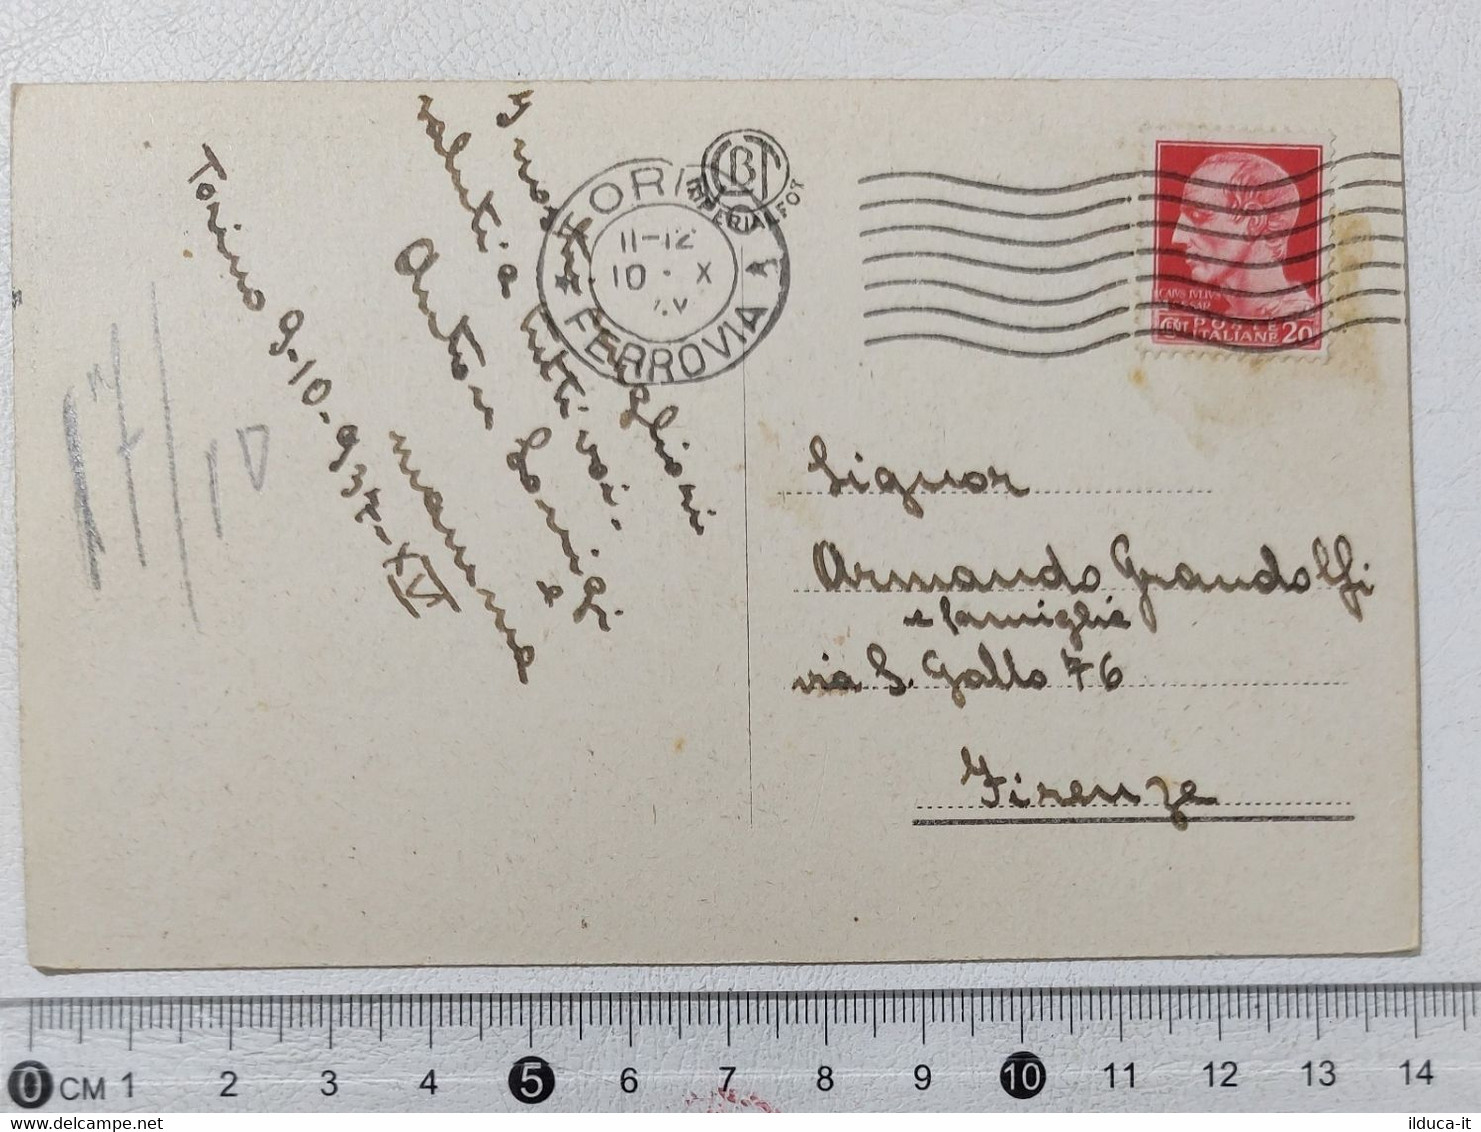 Torino 9-10-937-XV
17/10
I nostri migliori
saluti a tutti voi.
e
mamma
TORINO
FERROVIA
11-12
10 . X
XV
B
IMPERIALFOT
CAIVS IVLIVS
CAESAR
CENT
POSTE
ITALIANE
20
Signor
Armando Grandolfi
e famiglia
via S. Gallo 76
Firenze
0 CM 1 2 3 4 5 6 7 8 9 10 11 12 13 14
ilduca-it